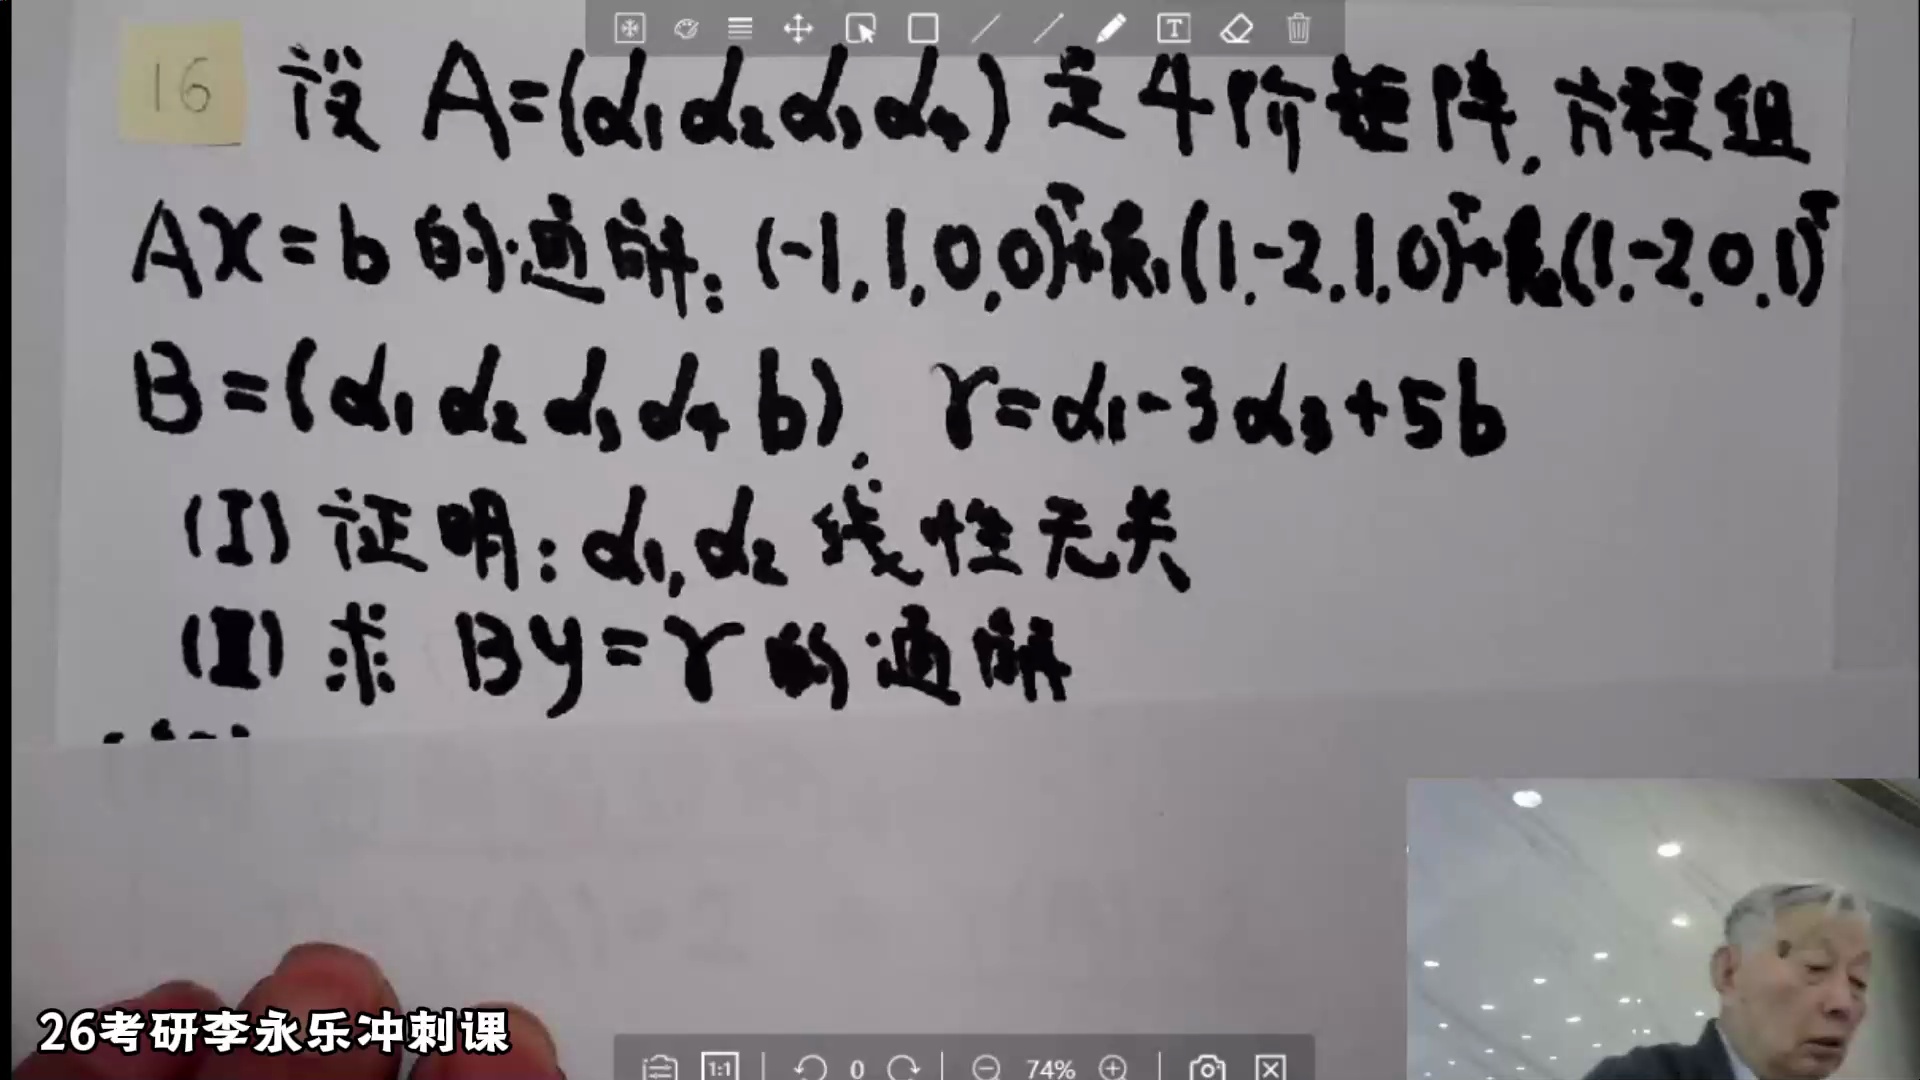 16 设 A=(α₁ α₂ α₃ α₄) 是4阶矩阵, 方程组
Ax=b 的通解: (-1,1,0,0)ᵀ+k₁(1,-2,1,0)ᵀ+k₂(1,-2,0,1)ᵀ
B=(α₁ α₂ α₃ α₄ b). γ=α₁-3α₃+5b
(I) 证明: α₁,α₂ 线性无关
(II) 求 By=γ 的通解
r(A)=2
26考研李永乐冲刺课
1:1 0 74%